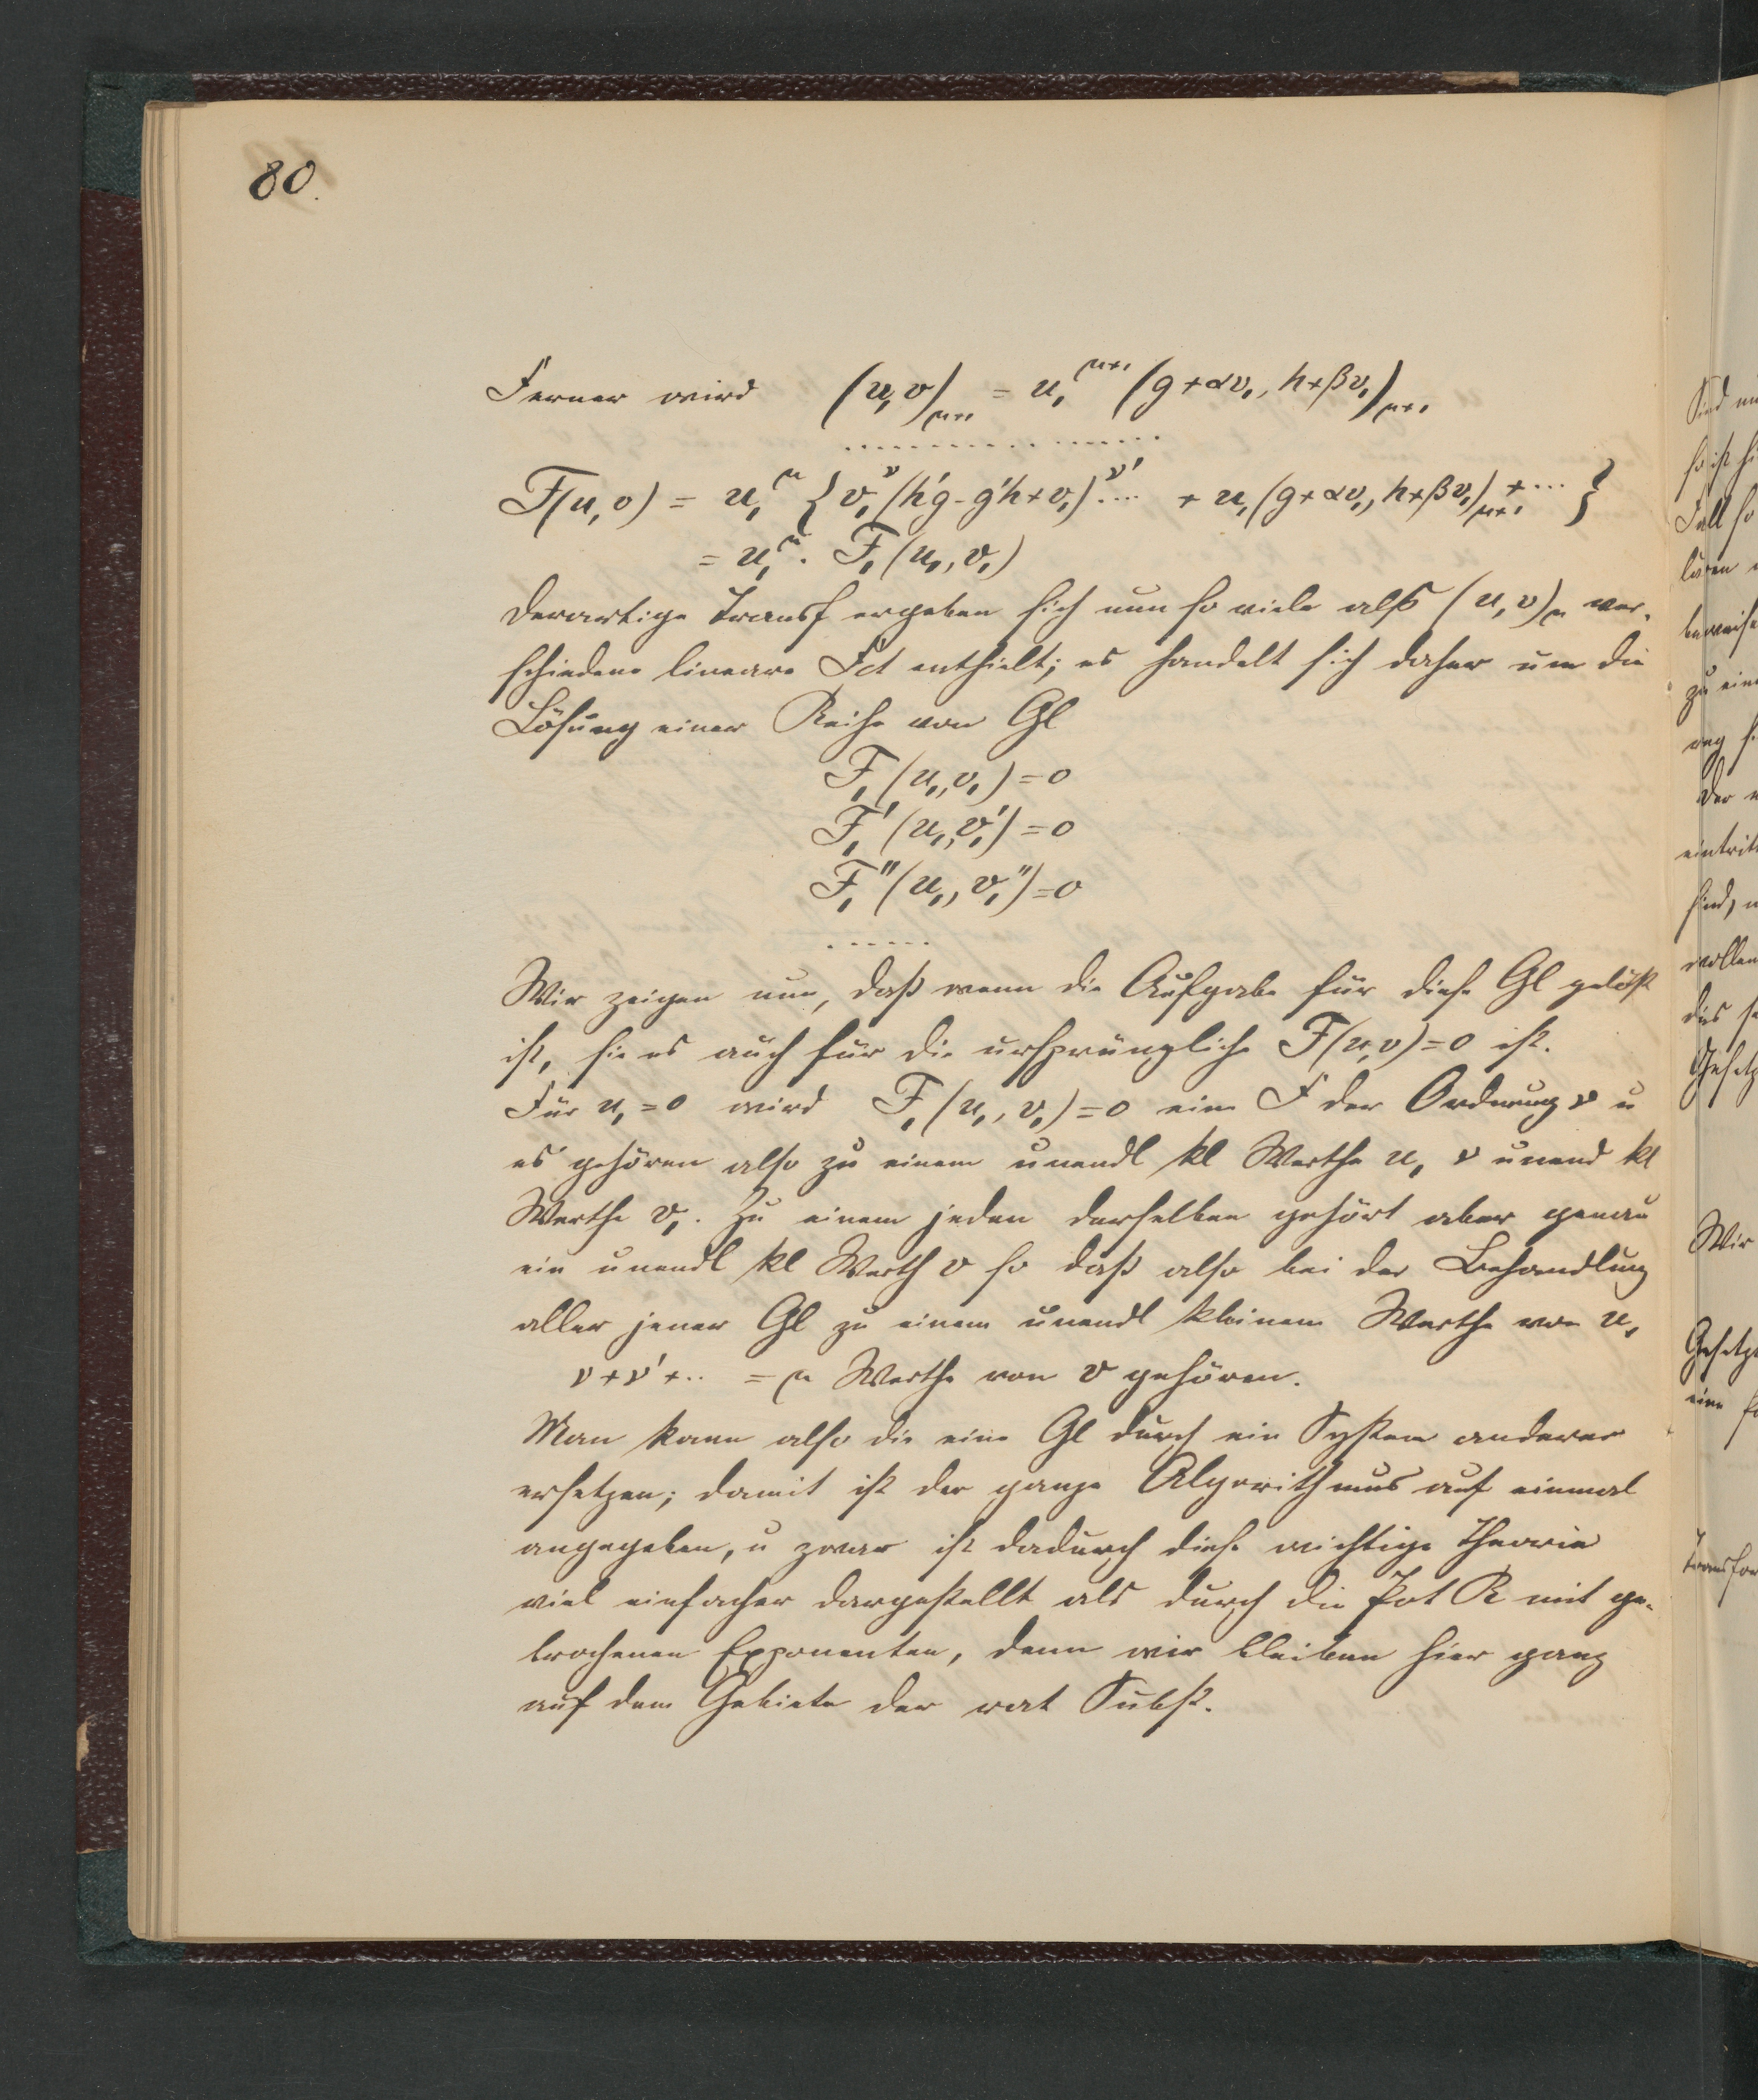 80.
Ferner wird (u, v)_{μ+1} = u₁^{μ+1} (g+αv₁, h+βv₁)_{μ+1}
. . . . . . . . . . . . . . . .
F(u, v) = u₁^μ { v₁^ν (h'g - g'h + v₁)^{ν'} ... + u₁ (g+αv₁, h+βv₁)_{μ+1} + ... }
= u₁^μ . F₁ (u₁, v₁)
Derartige Transf ergeben sich nun so viele als (u, v)_μ ver-
schiedene lineare Fct enthielt; es handelt sich daher um die
Lösung einer Reihe von Gl
F₁ (u₁, v₁) = 0
F₁' (u₁, v₁') = 0
F₁'' (u₁, v₁'') = 0
. . . . . .
Wir zeigen nun, daß wenn die Aufgabe für diese Gl gelöst
ist, sie es auch für die ursprüngliche F(u, v) = 0 ist.
Für u₁ = 0 wird F₁ (u₁, v₁) = 0 eine F der Ordnung ν u
es gehören also zu einem unendl kl Werthe u₁ ν unend kl
Werthe v₁. Zu einem jeden derselben gehört aber genau
ein unendl kl Werth v so daß also bei der Behandlung
aller jener Gl zu einem unendl kleinen Werthe von u₁
ν + ν' + .. = μ Werthe von v gehören.
Man kann also die eine Gl durch ein System anderer
ersetzen; damit ist der ganze Algorithmus auf einmal
angegeben, u zwar ist dadurch diese wichtige Theorie
viel einfacher dargestellt als durch die Pot R mit ge-
brochenen Exponenten, denn wir bleiben hier ganz
auf dem Gebiete der rat Subst.